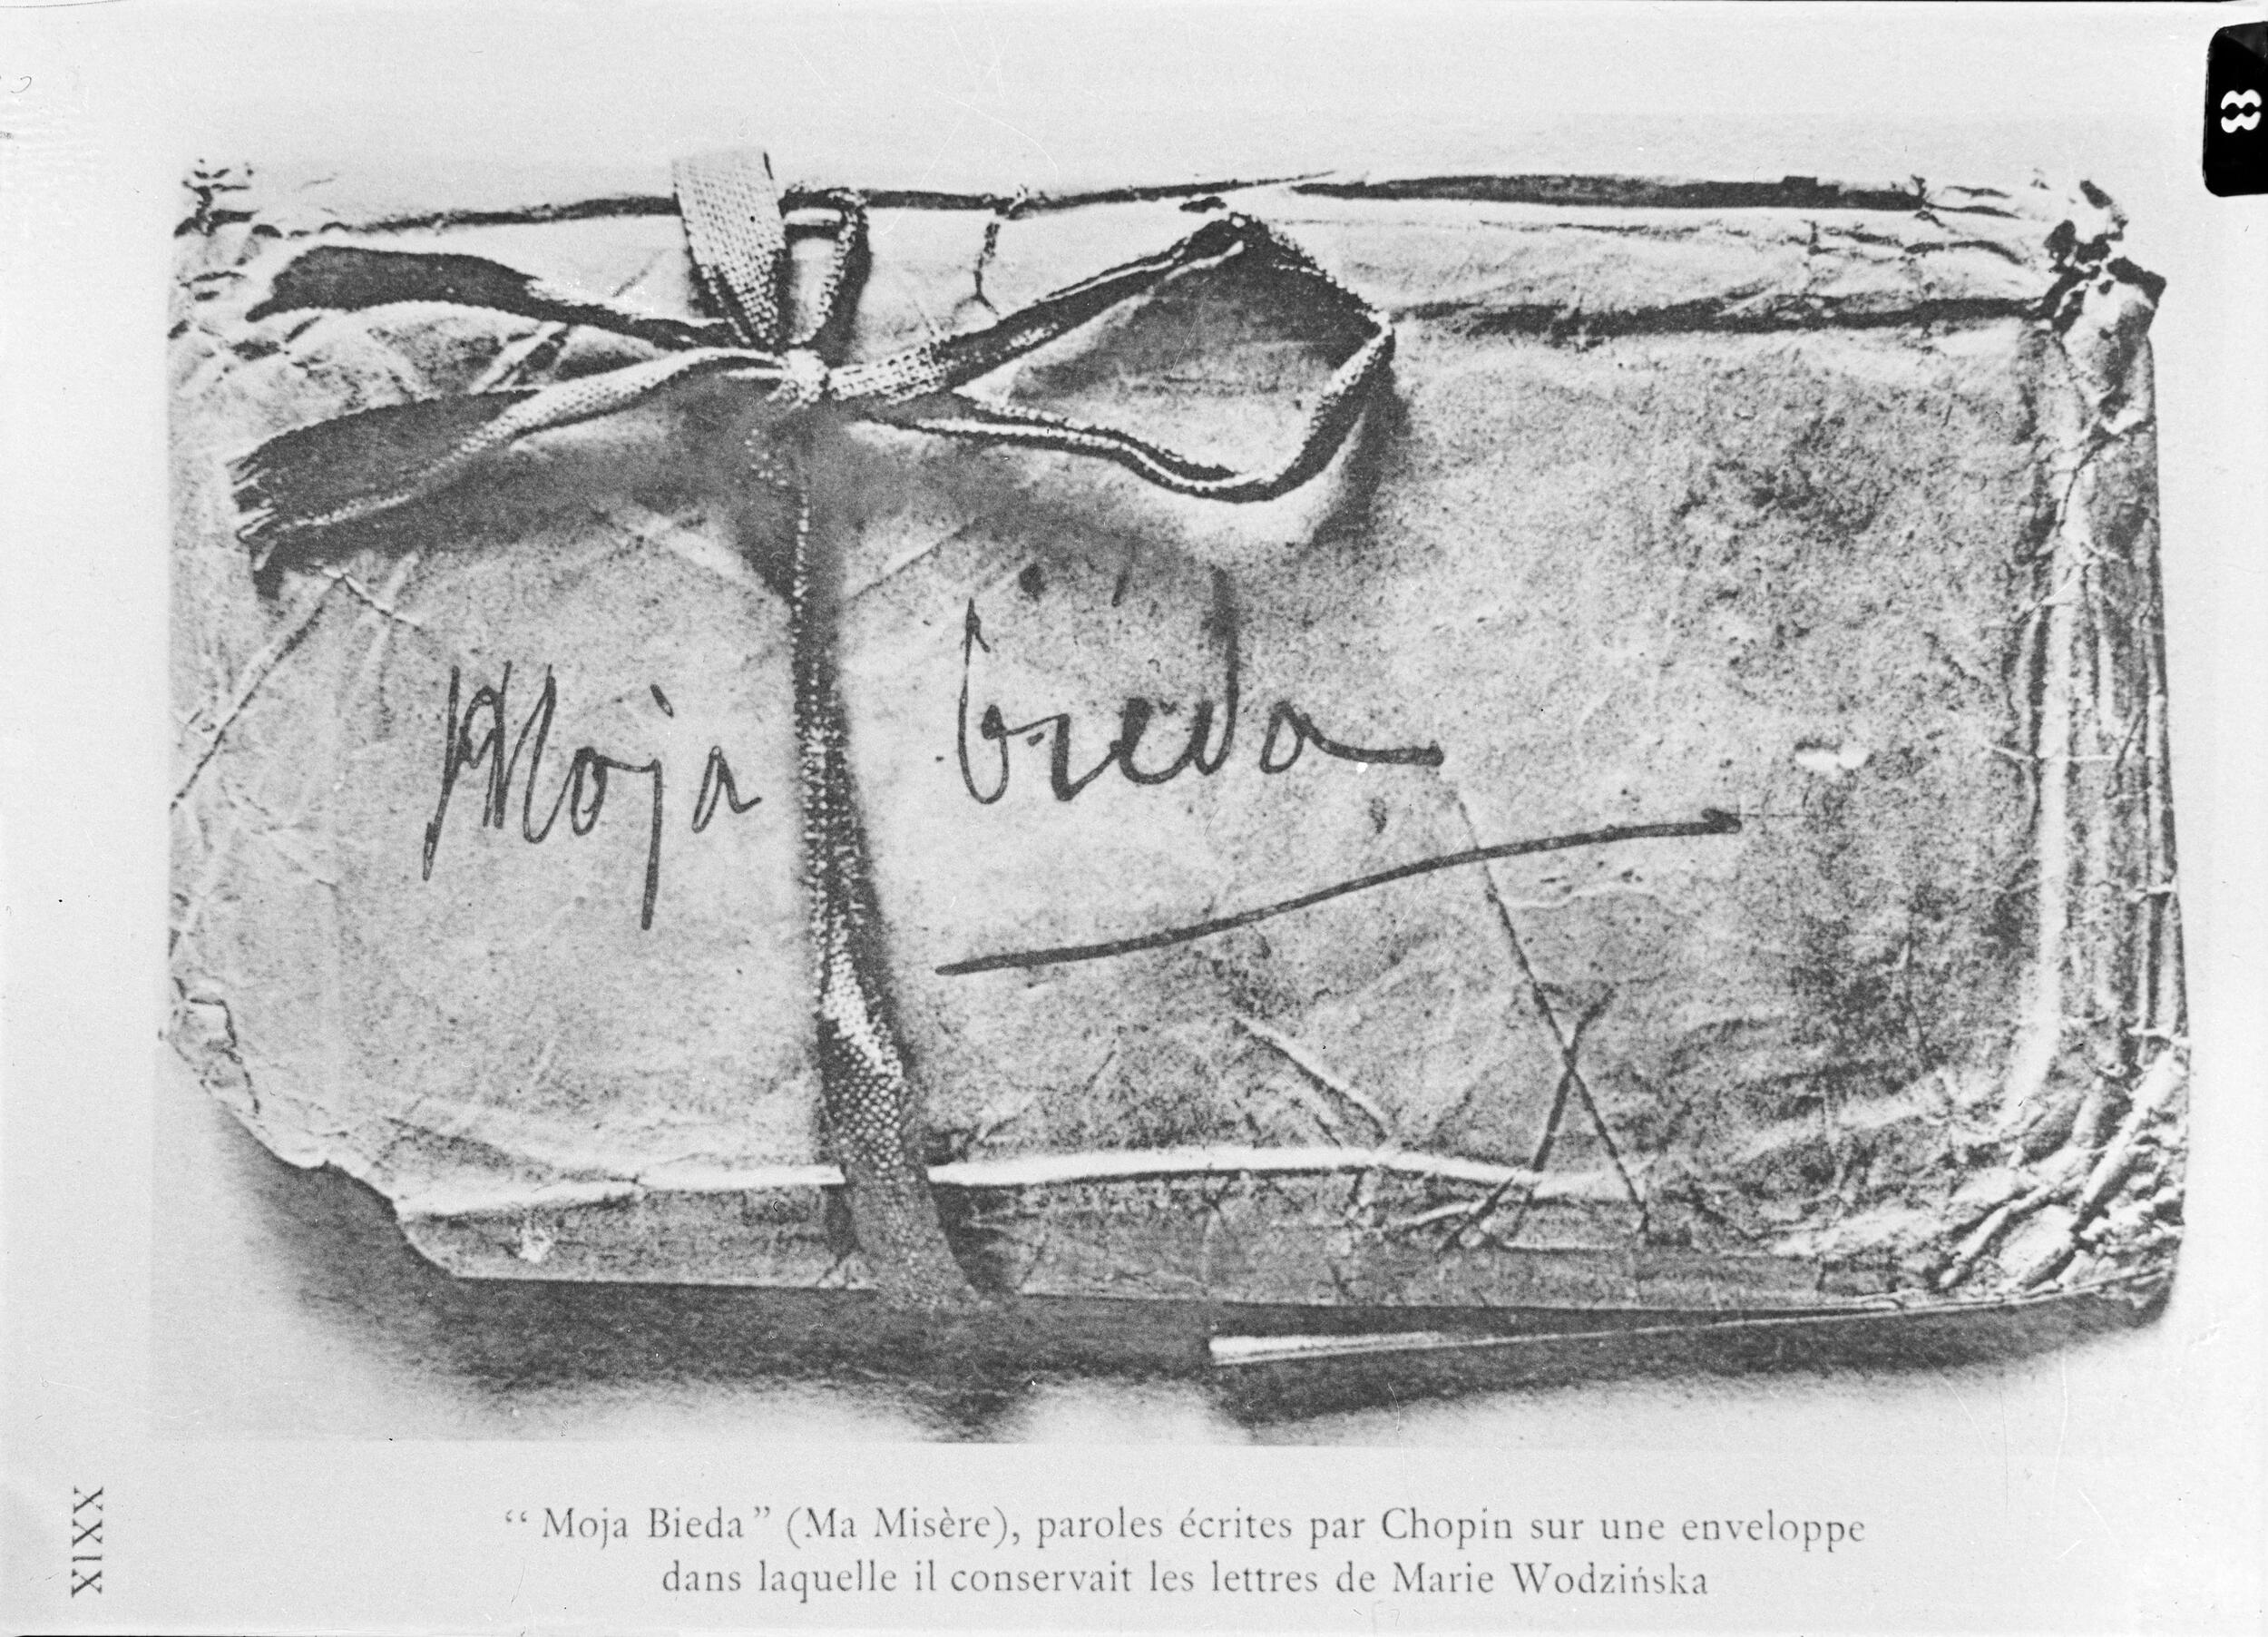 Moja bieda
“ Moja Bieda ” (Ma Misère), paroles écrites par Chopin sur une enveloppe
dans laquelle il conservait les lettres de Marie Wodzińska
XXIX